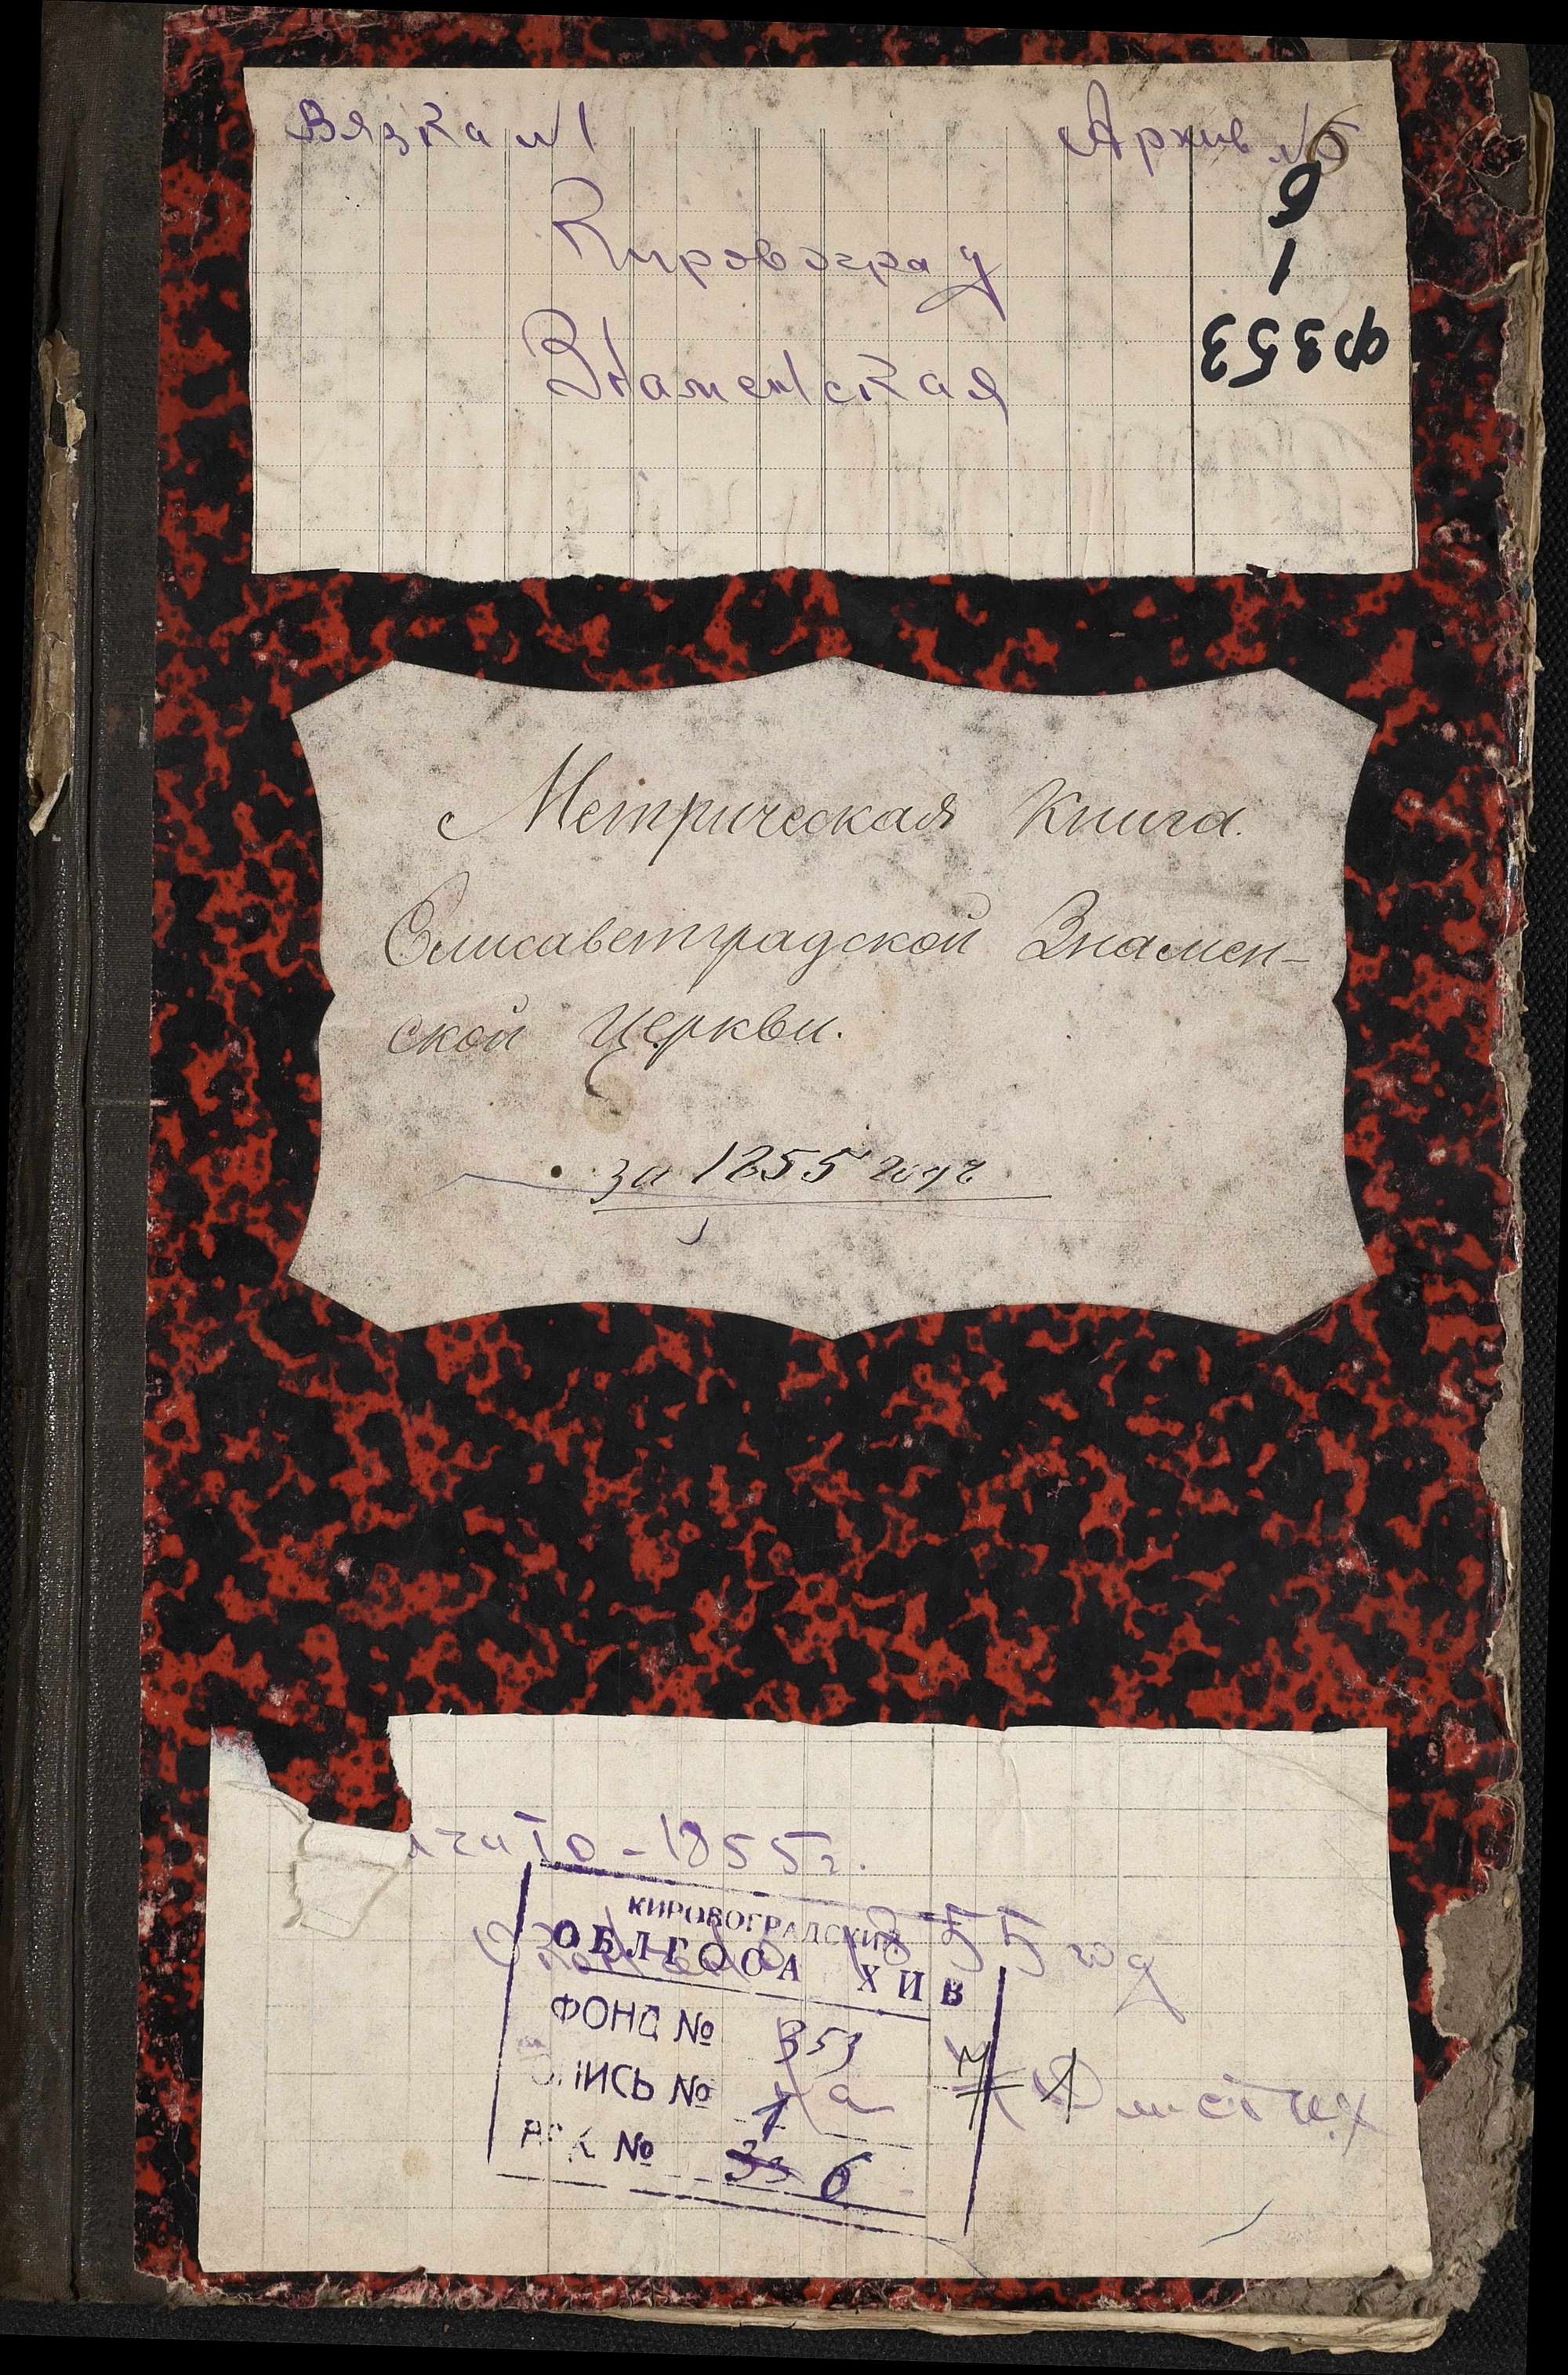 Вязка №1
Архив №5
Кировоград
Знаменская
ф353
1
6
Метрическая Книга.
Елисаветградской Знамен-
ской Церкви.
за 1855 годъ
ачато - 1855 г.
1855 год
КИРОВОГРАДСКИЙ
ОБЛГОСА ХИВ
ФОНД № 353
ОПИСЬ № 1
№ 6
листах